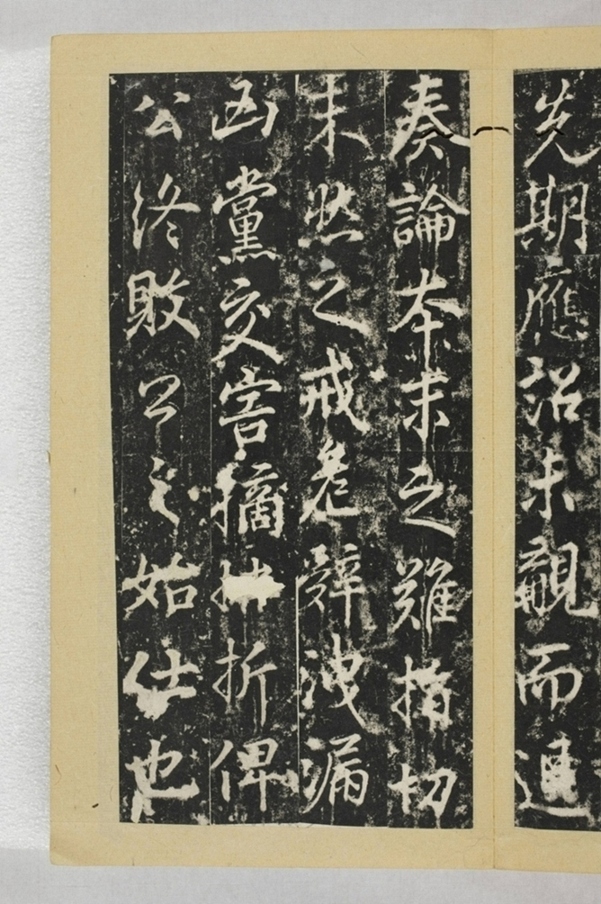 先期應詔未覿而進
奏論本末之難指切
未然之戒危辭洩漏
凶黨交害摘抉折俾
公終敗公之始仕也